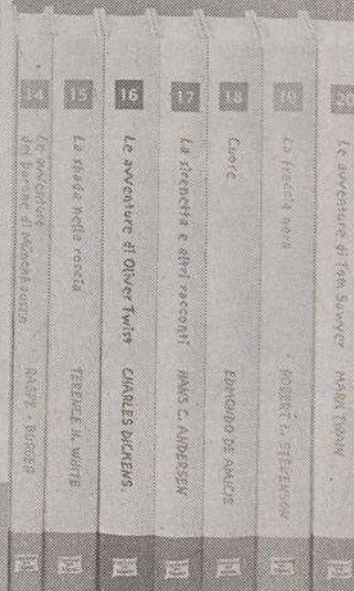 14
Le avventure
del barone di Münchhausen
RASPE - BÜRGER
15
La spada nella roccia
TERENCE H. WHITE
16
Le avventure di Oliver Twist
CHARLES DICKENS
17
La sirenetta e altri racconti
HANS C. ANDERSEN
18
Cuore
EDMONDO DE AMICIS
19
La freccia nera
ROBERT L. STEVENSON
20
Le avventure di Tom Sawyer
MARK TWAIN